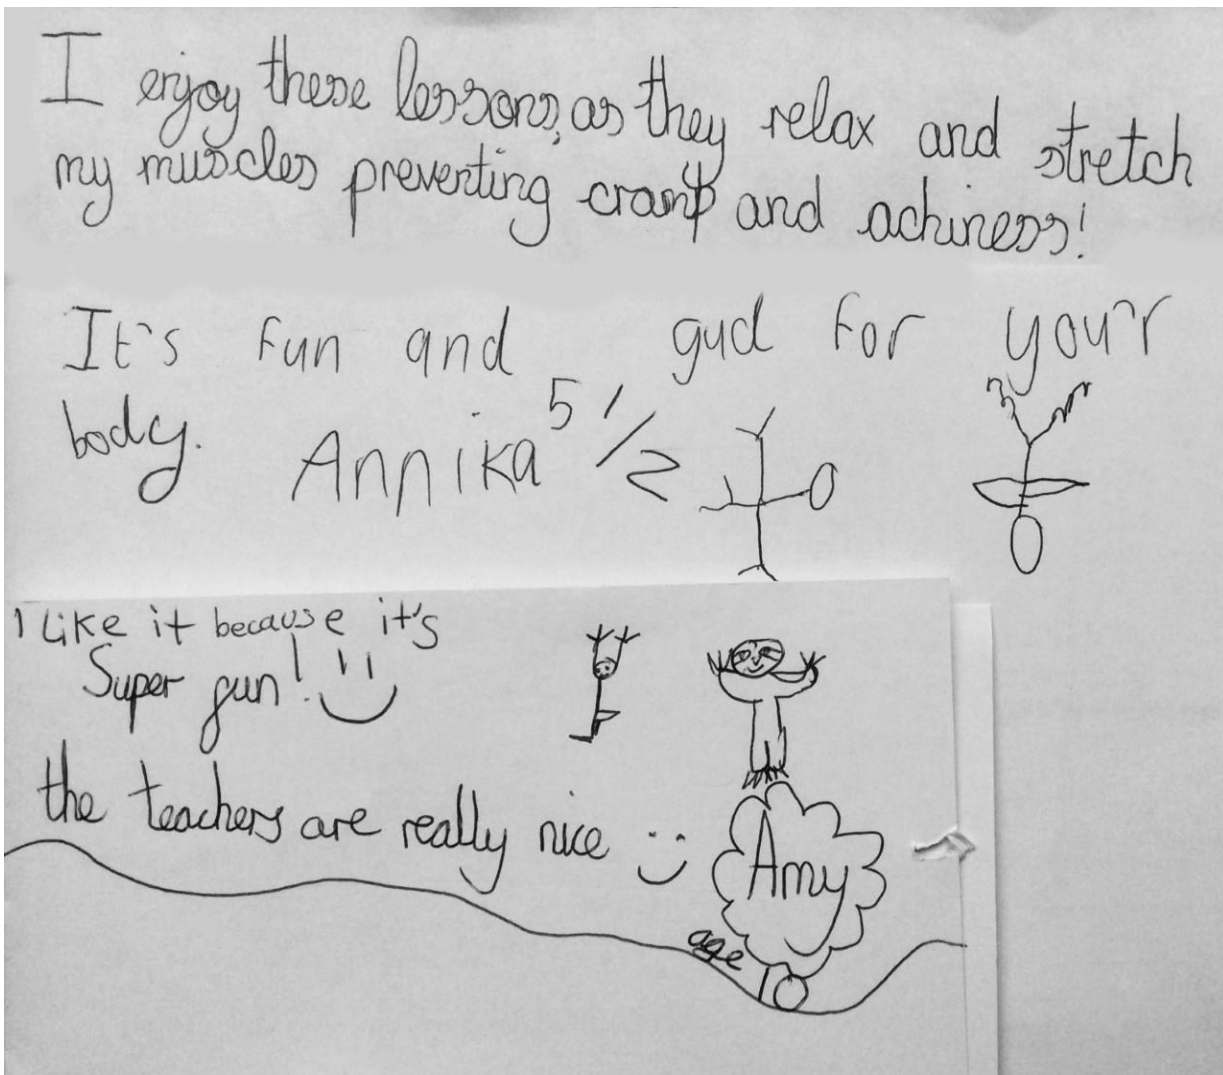 I enjoy these lessons, as they relax and stretch
my muscles preventing cramp and achiness!
It's fun and gud for you'r
body. Annika 5 1/2
I Like it because it's
Super fun!
the teachers are really nice
Amy
age 10